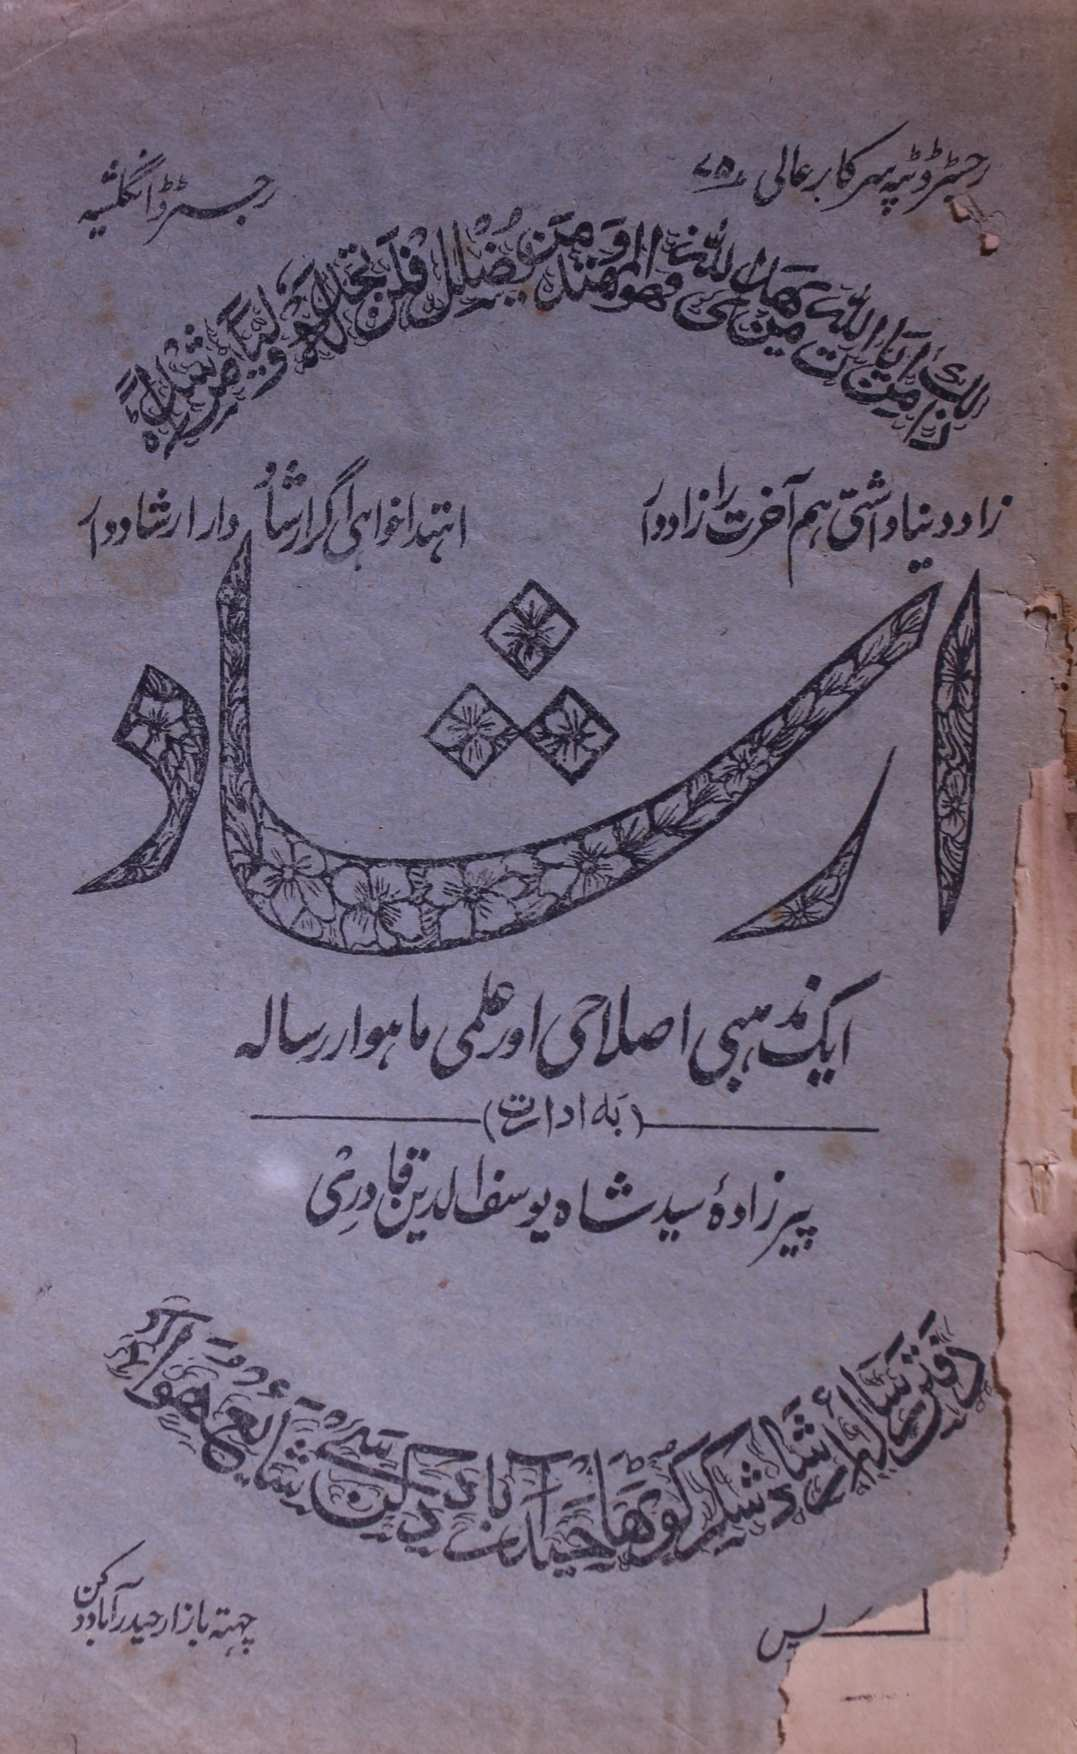 رجسٹرڈ ٹپہ سرکار عالی ۷۵
رجسٹرڈ انگلشیہ
ذٰلک من اٰیات اللہ من یھد اللہ فھو المھتد ومن یضلل فلن تجد لہ ولیا مرشدا
زاد دنیا داشتی ہم آخرت را زاد دار
اہتدا خواہی اگر ارشاد را ارشاد دار
ارشاد
ایک مذہبی اصلاحی اور علمی ماہوار رسالہ
(بہ ادارت)
پیرزادہ سید شاہ یوسف الدین قادری
دفتر رسالہ ارشاد شکر کوٹھا حیدرآباد دکن سے شایع ہوا
پریس
چھتہ بازار حیدرآباد دکن